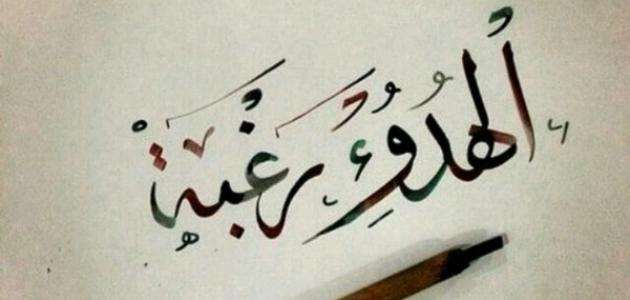 ألهدُوُء رغبةْ